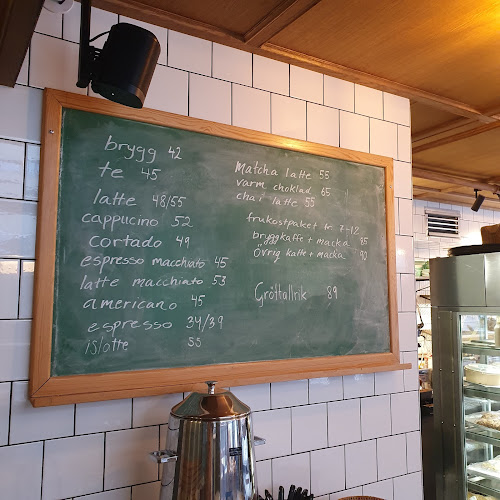 brygg 42
te 45
latte 48/55
cappucino 52
cortado 49
espresso macchiato 45
latte macchiato 53
americano 45
espresso 34/39
islatte 55
Matcha latte 55
varm choklad 65
chai latte 55
frukostpaket kl 7-12
bryggkaffe + macka 85
Övrig kaffe + macka 90
Grötfallrik 89